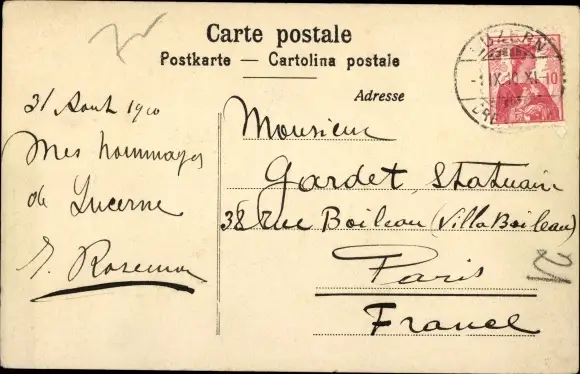 Carte postale
Postkarte — Cartolina postale
Adresse
LUZERN
10
31 Aout 1910
Mes hommages
de Lucerne
Monsieur
Gardet, Statuaire
38 rue Boileau (Villa Boileau)
Paris
France